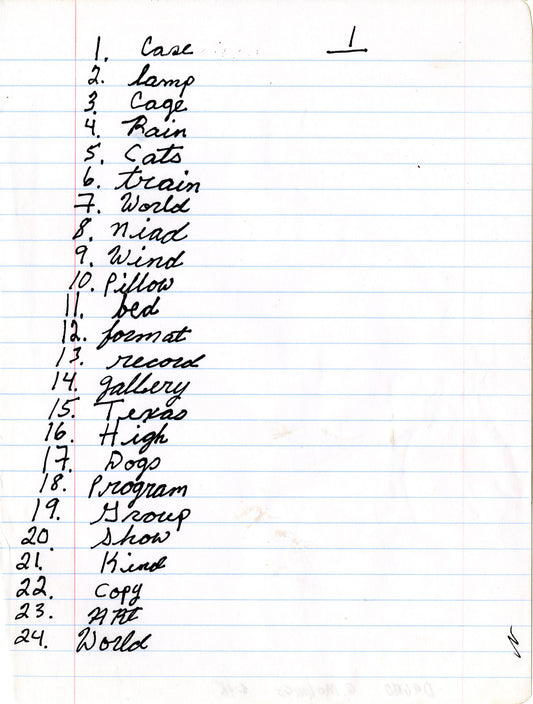 1
1. Case
2. lamp
3. Cage
4. Rain
5. Cats
6. train
7. World
8. niad
9. Wind
10. Pillow
11. bed
12. format
13. record
14. gallery
15. Texas
16. High
17. Dogs
18. Program
19. Group
20 Show
21. Kind
22. Copy
23. Art
24. World